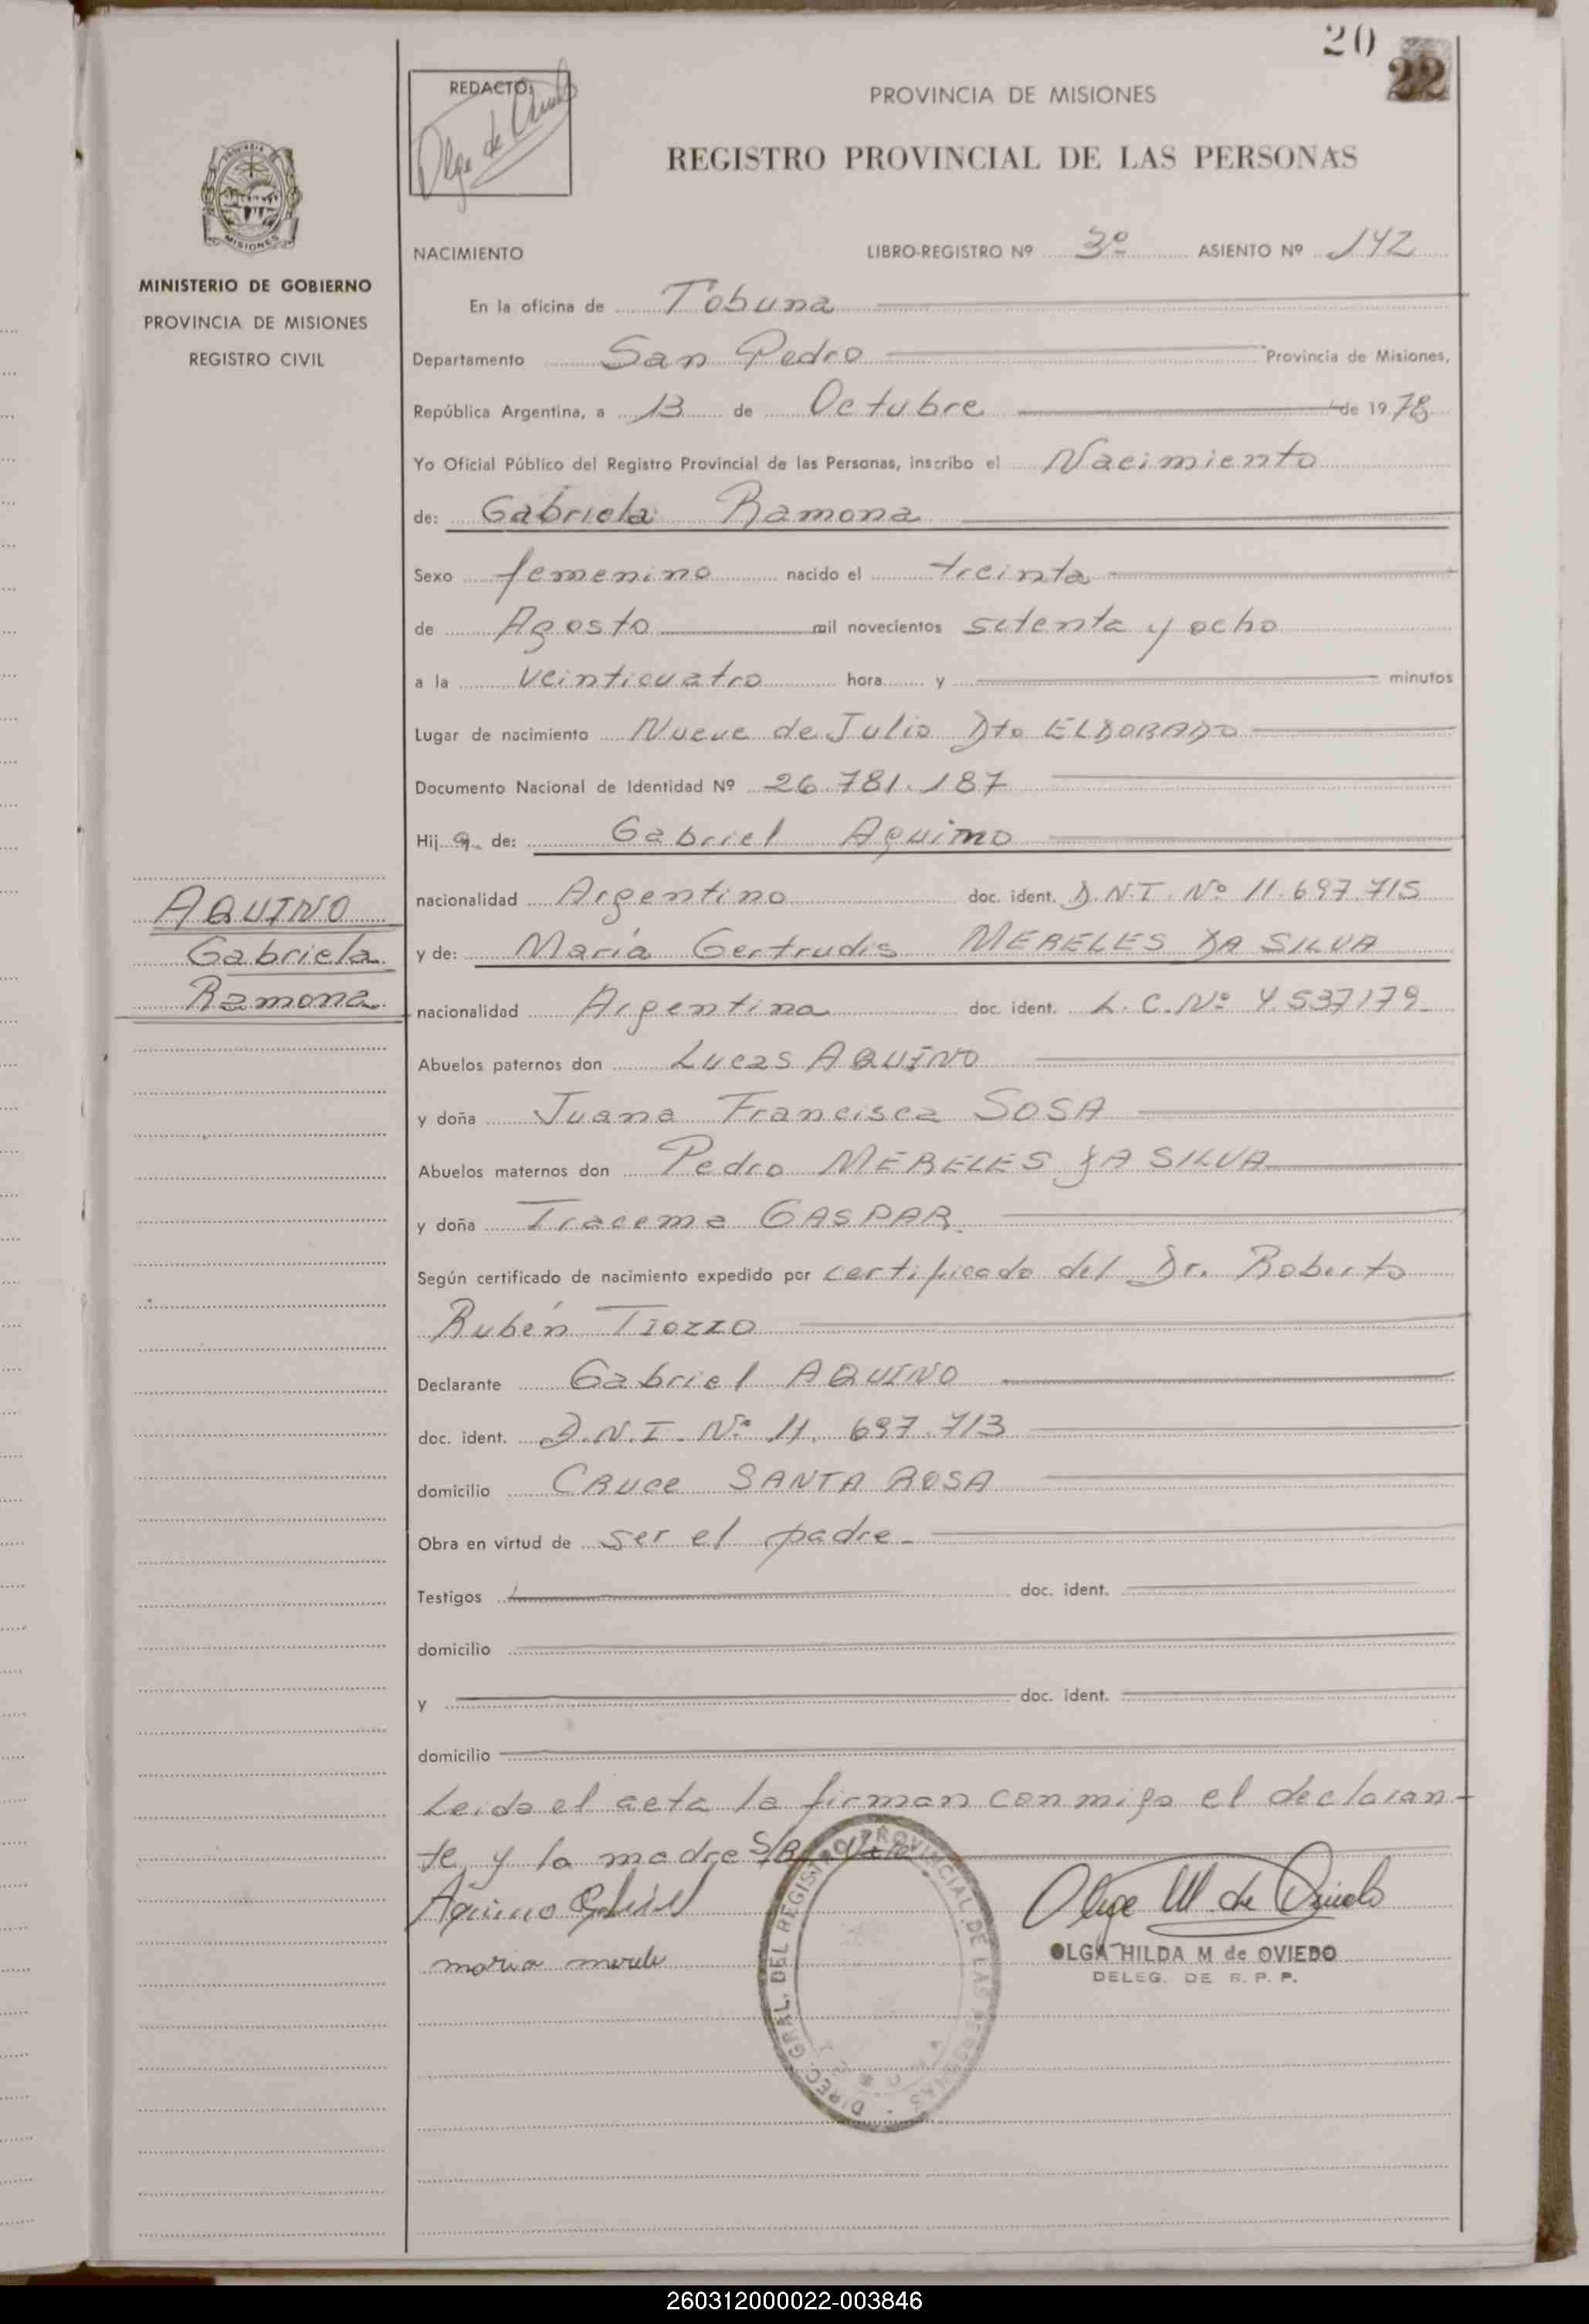 20
22
REDACTO:
PROVINCIA DE MISIONES
REGISTRO PROVINCIAL DE LAS PERSONAS
MISIONES
MINISTERIO DE GOBIERNO
PROVINCIA DE MISIONES
REGISTRO CIVIL
NACIMIENTO LIBRO-REGISTRO Nº 3º ASIENTO Nº 142
En la oficina de Tobuna
Departamento San Pedro Provincia de Misiones,
República Argentina, a 13 de Octubre de 1978
Yo Oficial Público del Registro Provincial de las Personas, inscribo el Nacimiento
de: Gabriela Ramona
Sexo femenino nacido el treinta
de Agosto mil novecientos setenta y ocho
a la veinticuatro hora y minutos
Lugar de nacimiento Nueve de Julio Dto ELDORADO
Documento Nacional de Identidad Nº 26.781.187
Hija de: Gabriel Aquino
AQUINO
Gabriela
Ramona
nacionalidad Argentino doc. ident. D.N.I. Nº 11.697.715
y de: María Gertrudis MERELES DA SILVA
nacionalidad Argentina doc. ident. L.C. Nº 4.537179
Abuelos paternos don Lucas AQUINO
y doña Juana Francisca SOSA
Abuelos maternos don Pedro MERELES DA SILVA
y doña Iracema GASPAR
Según certificado de nacimiento expedido por certificado del Dr. Roberto
Rubén TIOZZO
Declarante Gabriel AQUINO
doc. ident. D.N.I. Nº 11.697.713
domicilio CRUCE SANTA ROSA
Obra en virtud de ser el padre
Testigos doc. ident.
domicilio
y doc. ident.
domicilio
Leida el acta la firman conmigo el declaran-
te, y la madre S/R
Aquino Gabriel
maria merele
Olga M de Oviedo
OLGA HILDA M de OVIEDO
DELEG. DE R. P. P.
DIREC. GRAL. DEL REGISTRO PROVINCIAL DE LAS PERSONAS
260312000022-003846